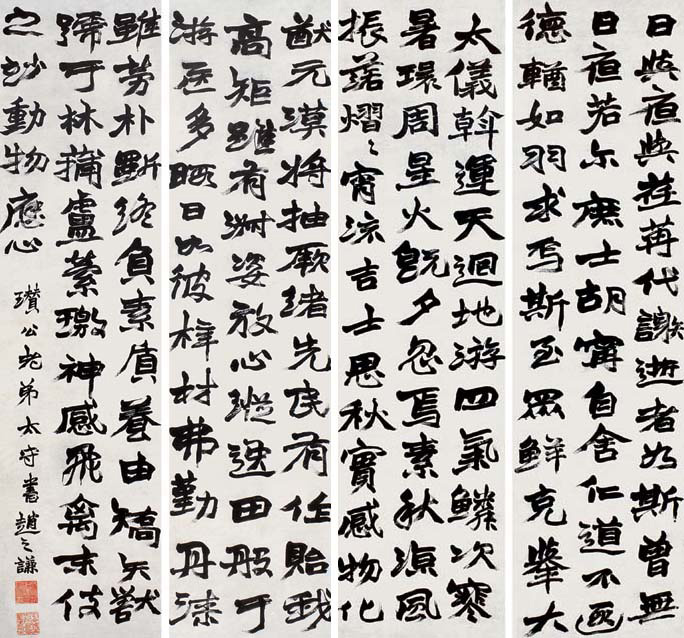 日與夜與荏苒代謝逝者如斯曾無
日夜若尔庶士胡甯自舍仁道不遐
德輶如羽求焉斯至眾鮮克舉大
太儀斡運天迴地游四氣鱗次寒
暑環周星火既夕忽焉素秋涼風
振落熠〻宵流吉士思秋實感物化
猷元漠將抽厥緒先民有作貽我
高矩雖有淑姿放心縱逸田般于
游居多暇日如彼梓材弗勤丹漆
雖勞朴斲終負素質養由矯矢獸
號于林蒲盧縈璥神感飛禽末伎
之妙動物應心
瓚公老弟太守書趙之謙